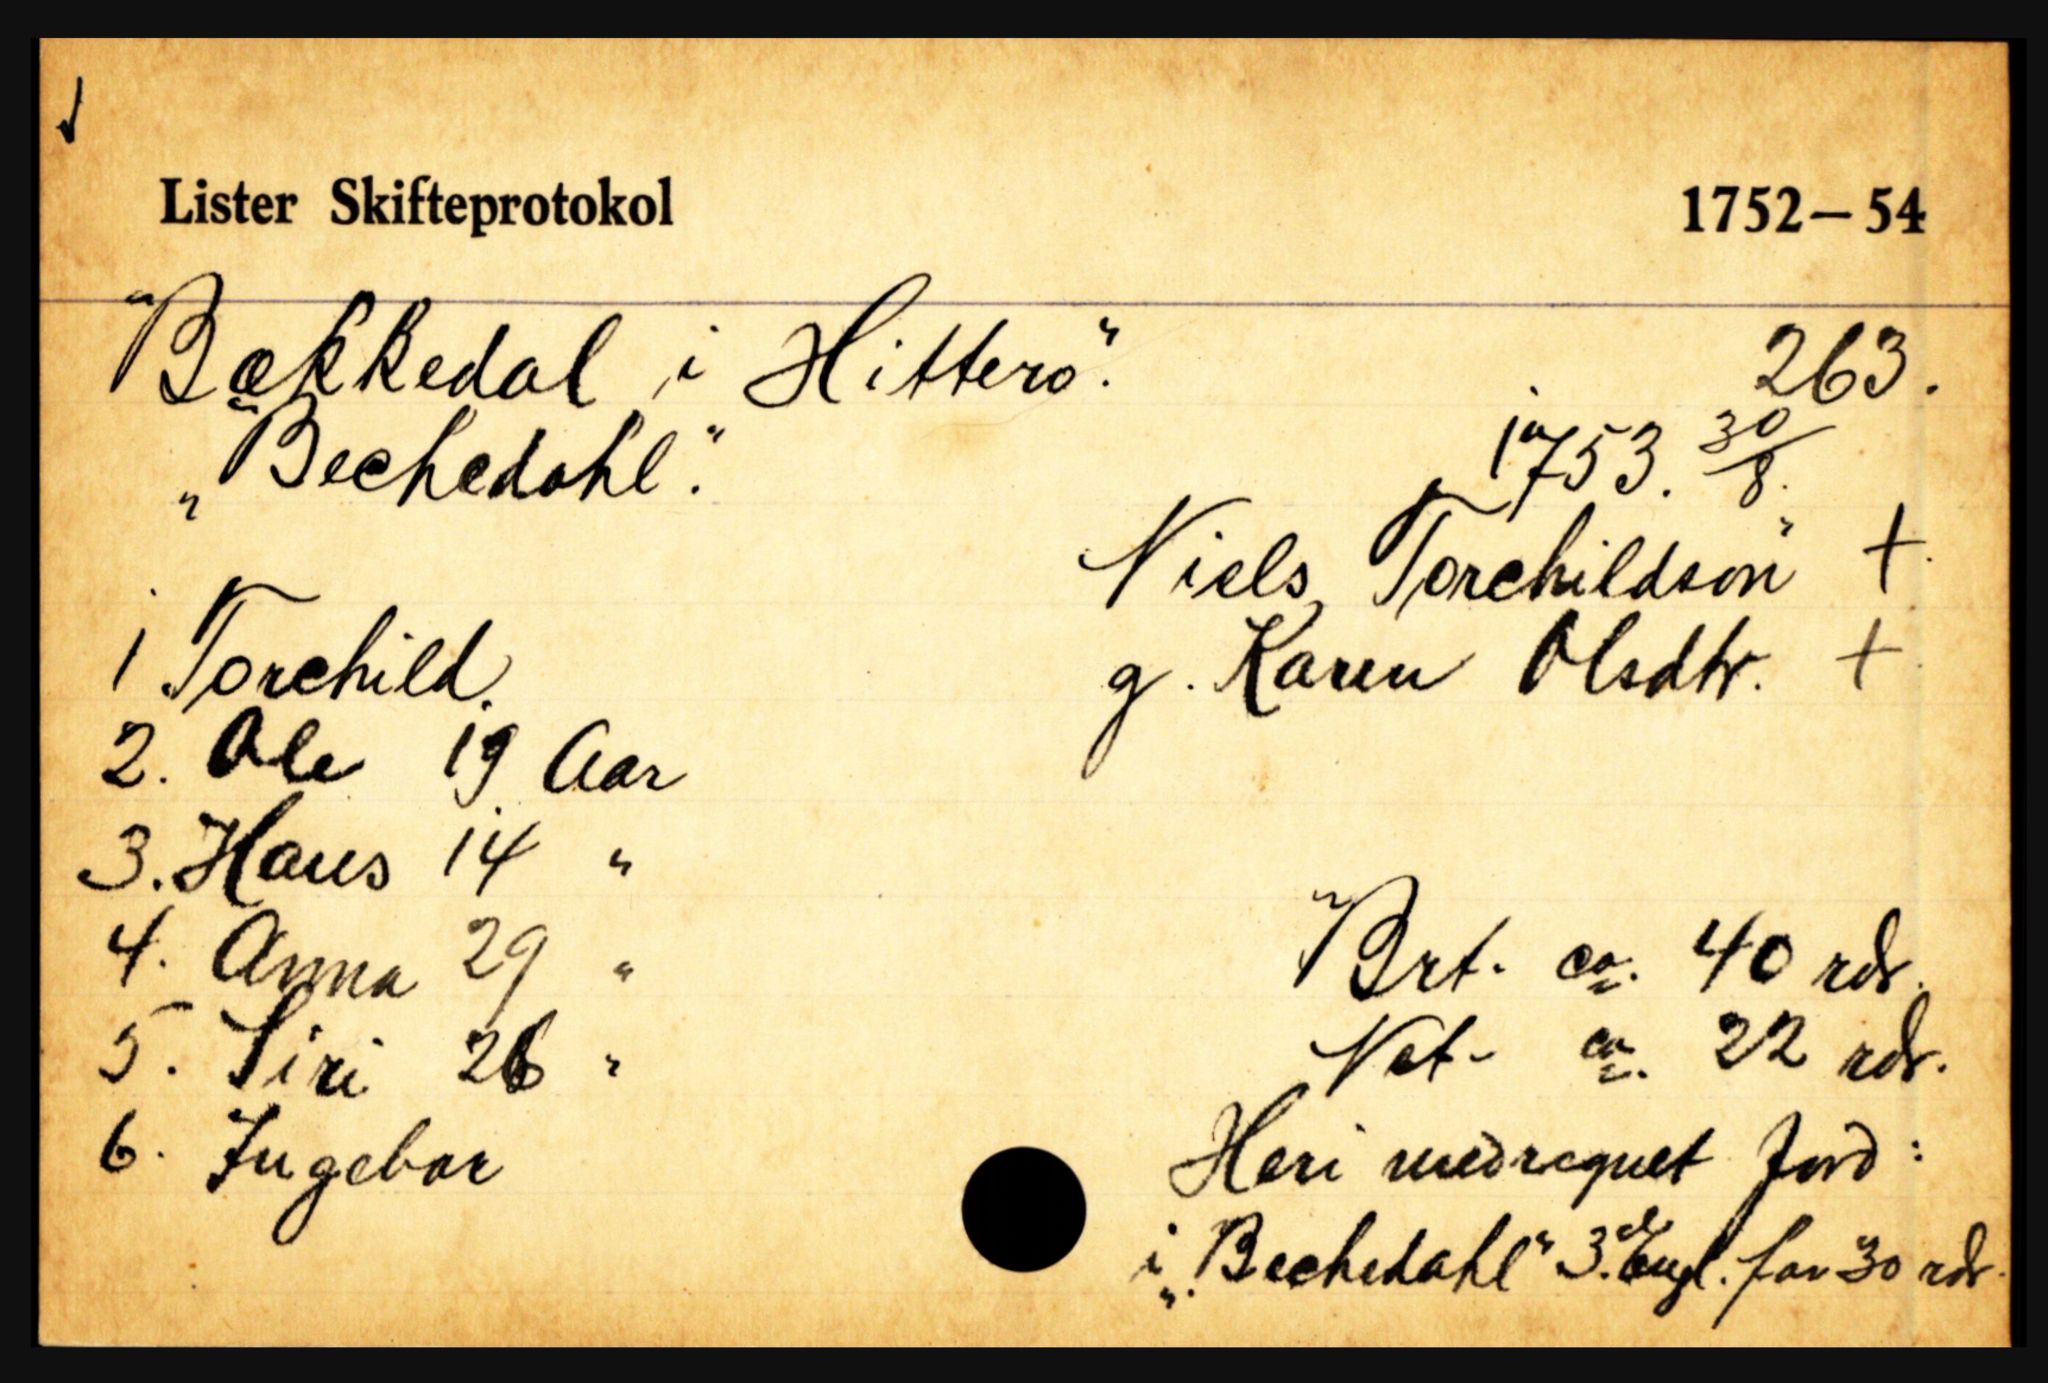 Lister Skifteprotokol 1752—54
Bækkedal i Hitterö".
263.
„Bechedahl".
1753. 30/8.
Niels Torchildson" +
g. Karen Olsdtr. +
1 Torchild.
2. Ole 19 Aar
3. Hans 14 "
4. Anna 29 "
5. Siri 26 "
6. Ingebor
Brt. ca. 40 rdr.
Net- ca. 22 rdr.
Heri medregnet Jord:
i „Bechedahl" 3. Engl. for 30 rdr.